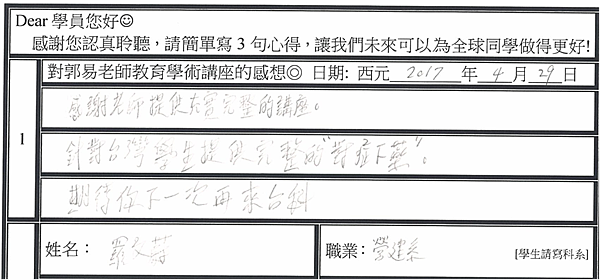 Dear 學員您好☺
感謝您認真聆聽，請簡單寫 3 句心得，讓我們未來可以為全球同學做得更好!
對郭易老師教育學術講座的感想◎ 日期: 西元 2017 年 4 月 29 日
1
感謝老師提供充實完整的講座。
針對台灣學生提供完整的"對症下藥"。
期待你下一次再來台科
姓名： 羅文
職業： 營建系 [學生請寫科系]